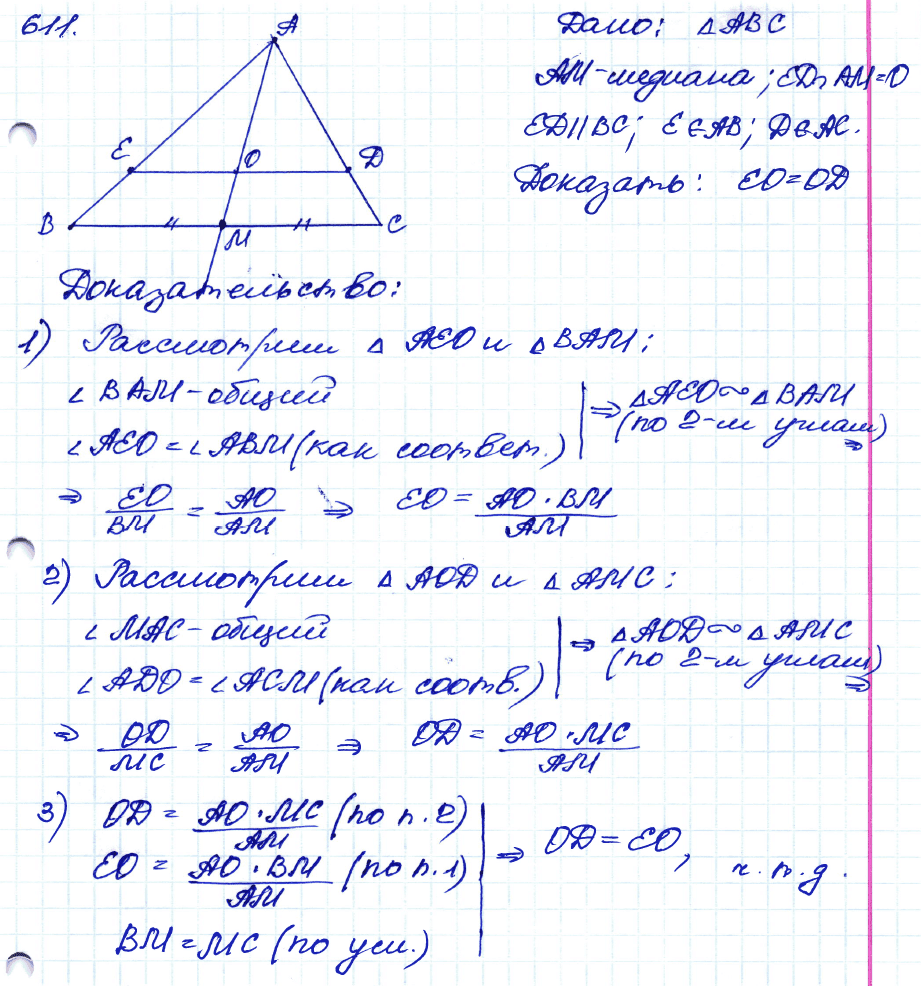 611.
A
E
O
D
B
M
C
Дано: △ABC
AM-медиана; ED∩AM=O
ED||BC; E∈AB; D∈AC.
Доказать: EO=OD
Доказательство:
1) Рассмотрим △ AEO и △BAM;
∠BAM-общий
∠AEO=∠ABM(как соответ.)
⇒ △AEO∾△BAM
(по 2-м углам)
⇒
⇒ EO/BM = AO/AM ⇒ EO = AO·BM/AM
2) Рассмотрим △AOD и △AMC;
∠MAC-общий
∠ADO=∠ACM(как соотв.)
⇒ △AOD∾△AMC
(по 2-м углам)
⇒
⇒ OD/MC = AO/AM ⇒ OD = AO·MC/AM
3) OD = AO·MC/AM (по п.2)
EO = AO·BM/AM (по п.1)
BM=MC (по усл.)
⇒ OD=EO, ч.т.д.